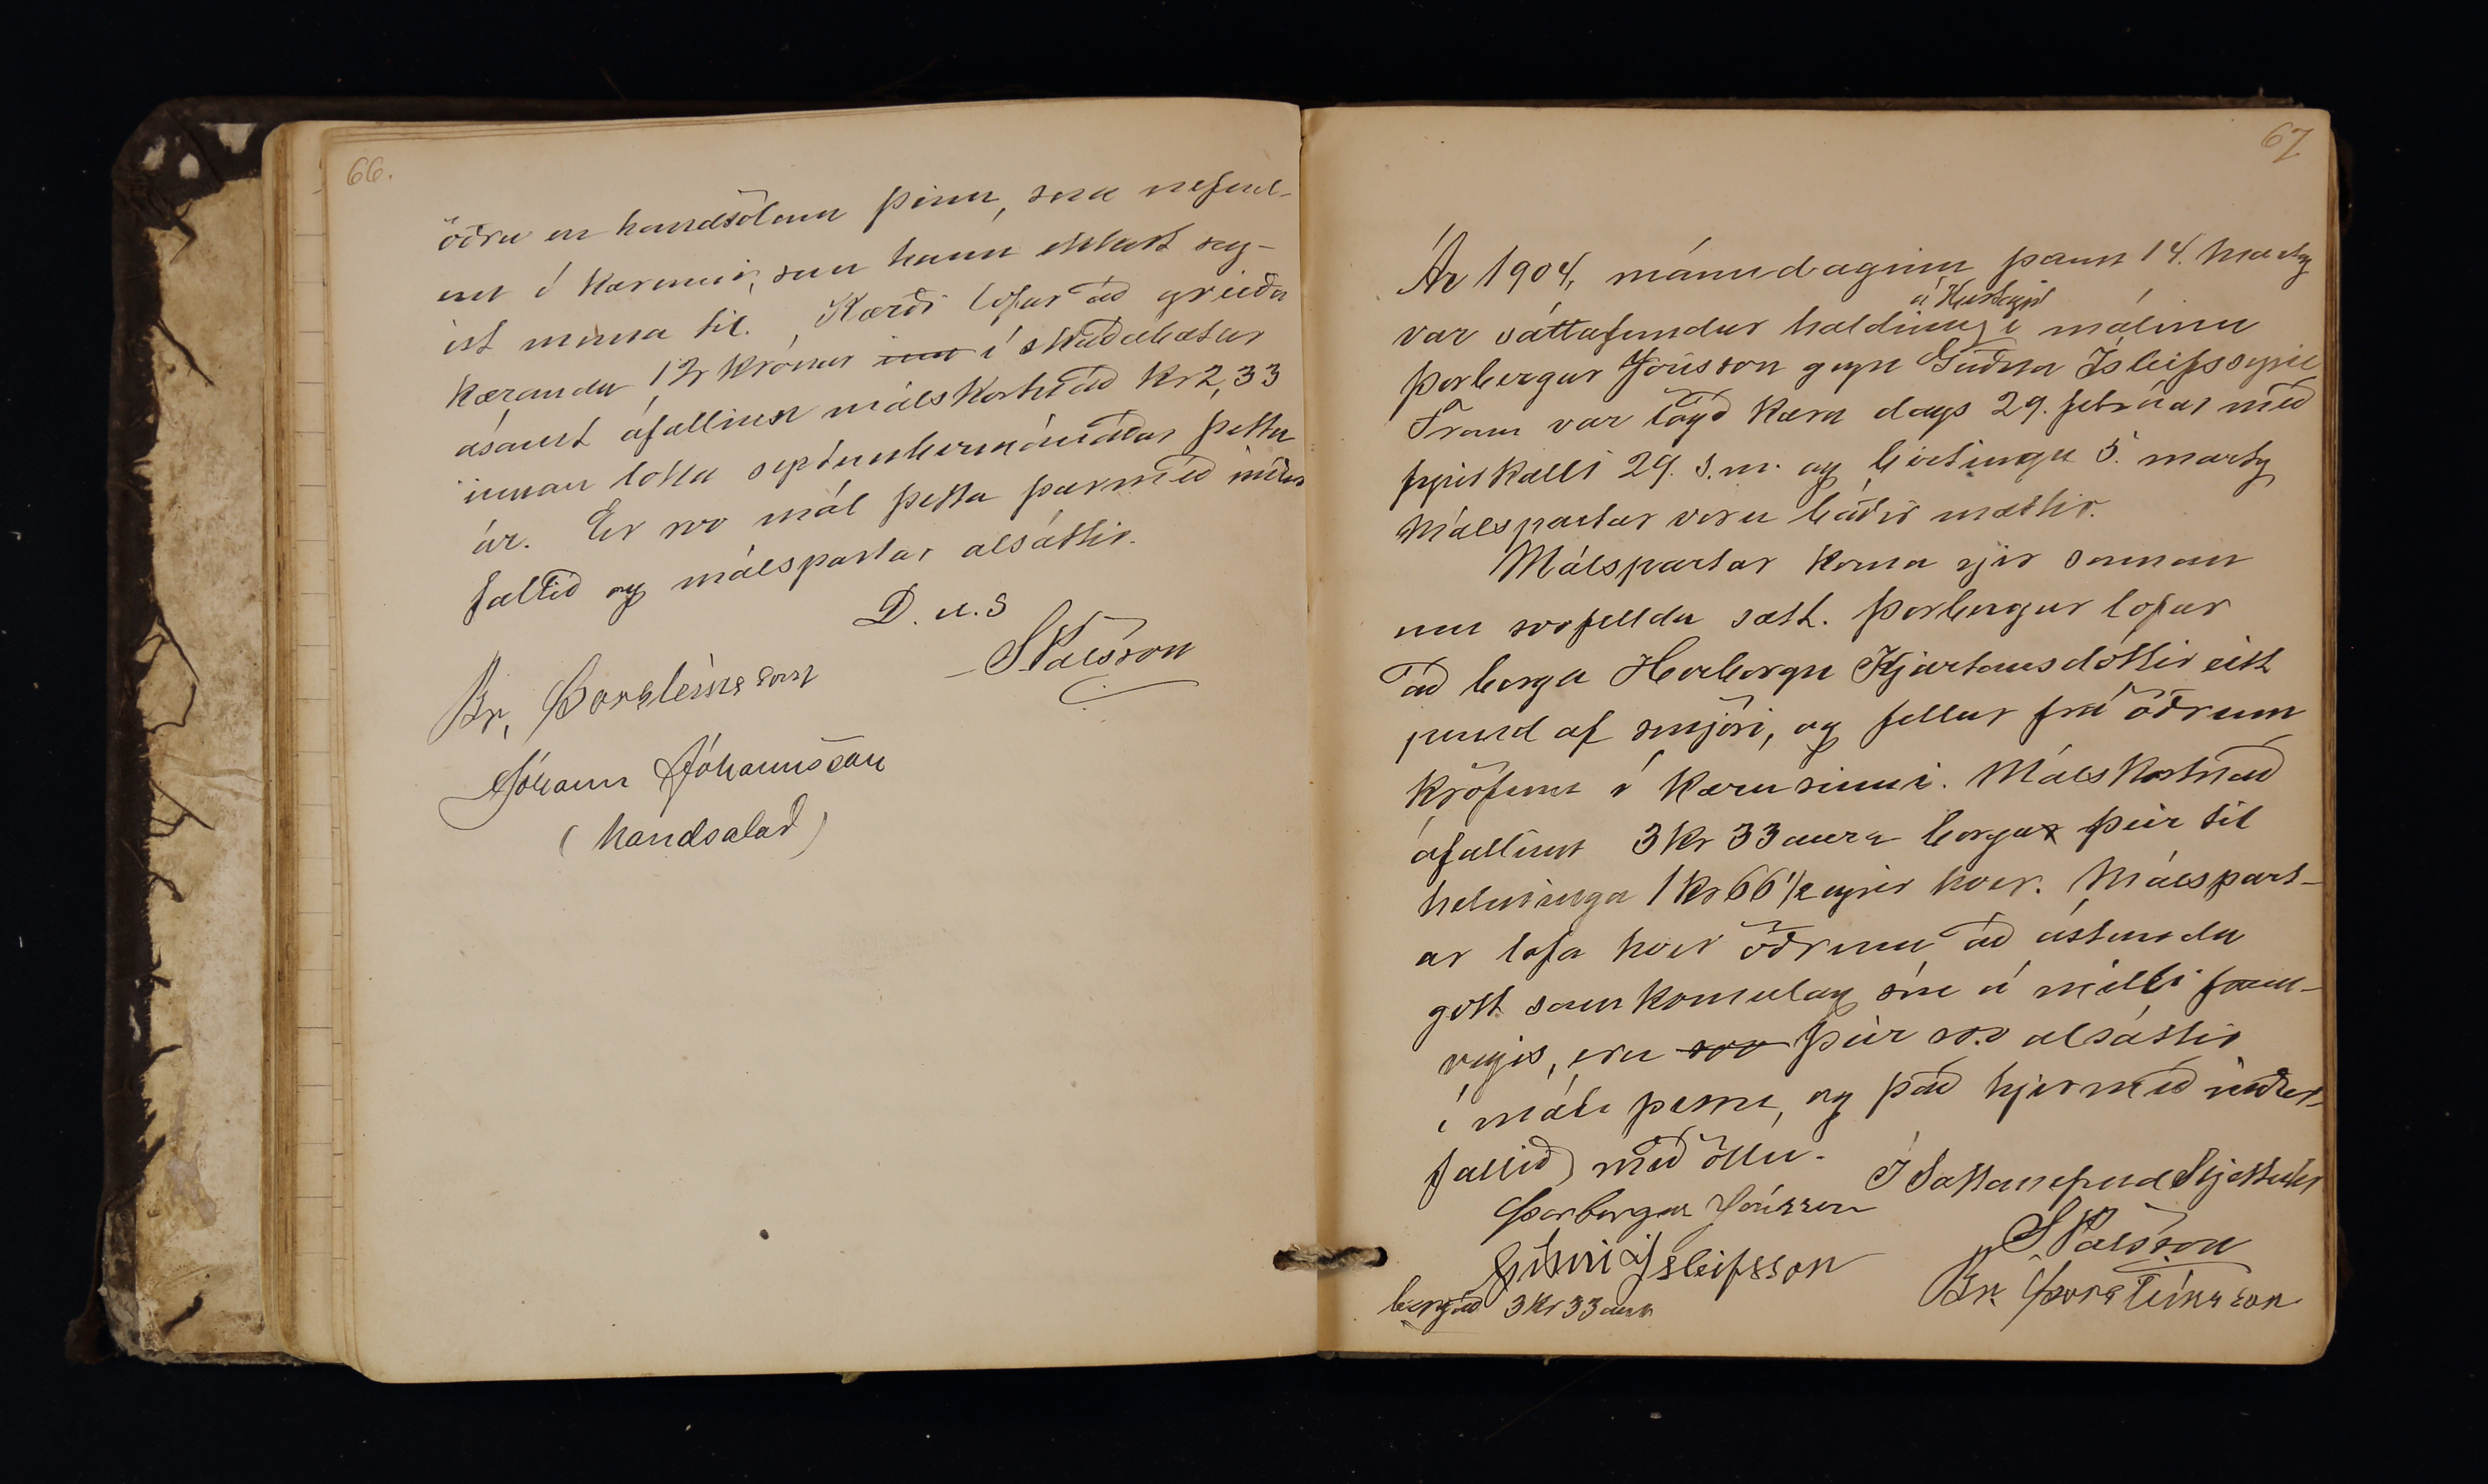 66.
öðru en handsölum þeim, sem nefnd-
eru í kærunni, sem hann ekkert seg-
ist muna til. Kærði lofar að greiða
kæranda 12 krónur í skaðabætur
ásamt áföllnum málskostnað kr 2,33
innan loka septembermánaðar þetta
ár. Er svo mál þetta þarmeð niður
fallið og málspartar alsáttir.
D. u. s
SPálsson
Br, Þorsteinsson
Jóhann Jóhannsson
(handsalað)
67
Ár 1904, mánudaginn þann 14. marts
á
var sáttafundur haldinn í málinu
Þorbergur Jónsson gegn Guðna Ísleifssyni
Fram var lögð kæra dags 29. febrúar með
fyrirkalli 29. s.m. og birtingu 5. marts
Málspartar voru báðir mættir.
Málspartar koma sjer saman
um svofellda sátt. Þorbergur lofar
að borga Herborgu Kjartansdóttir eitt
pund af smjöri, og fellur frá öðrum
kröfum í kæru sinni. Málskostnað
áfallinn 3 kr 33 aura borga þeir til
helminga 1 kr 66 1/2 eyrir hver. Málspart-
ar lofa hver öðrum að ástunda
gott samkomulag sín á milli fram-
vegis, eru svo þeir svo alsáttir
í máli þessu, og það hjermeð niður-
fallið með öllu.
Í Sáttanefnd
Þorbergur Jónsson
SPálsson
Guðni Ísleifsson
Br. Þorsteinsson
borgað 3 kr 33 aura